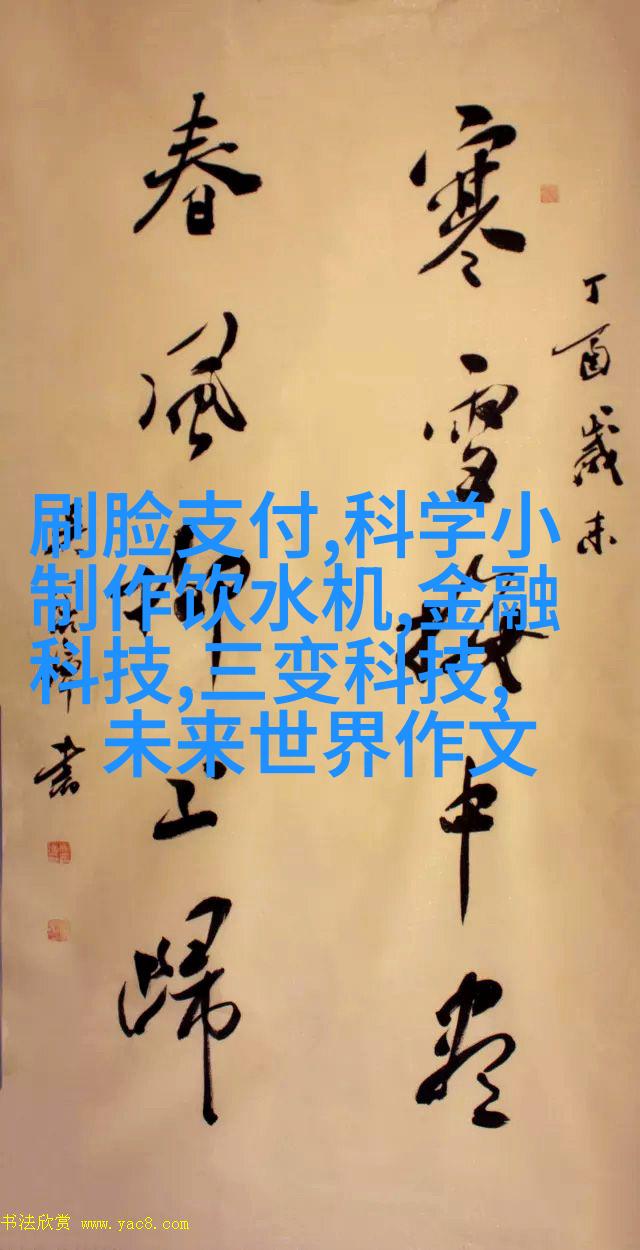 丁酉歲末
寒雪梅中尽
春風柳上歸
書
刷脸支付,科学小
制作饮水机,金融
科技,三变科技,
未来世界作文
书法欣赏 www.yac8.com